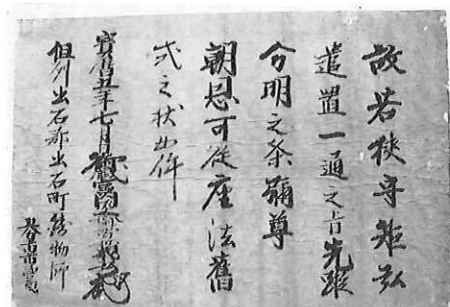 故若狭守矩弘
遣置一通之旨先蹤
分明之条弥尊
朝恩可從座法舊
式之状如件
寳暦五年七月
但州出石郡出石町鋳物師